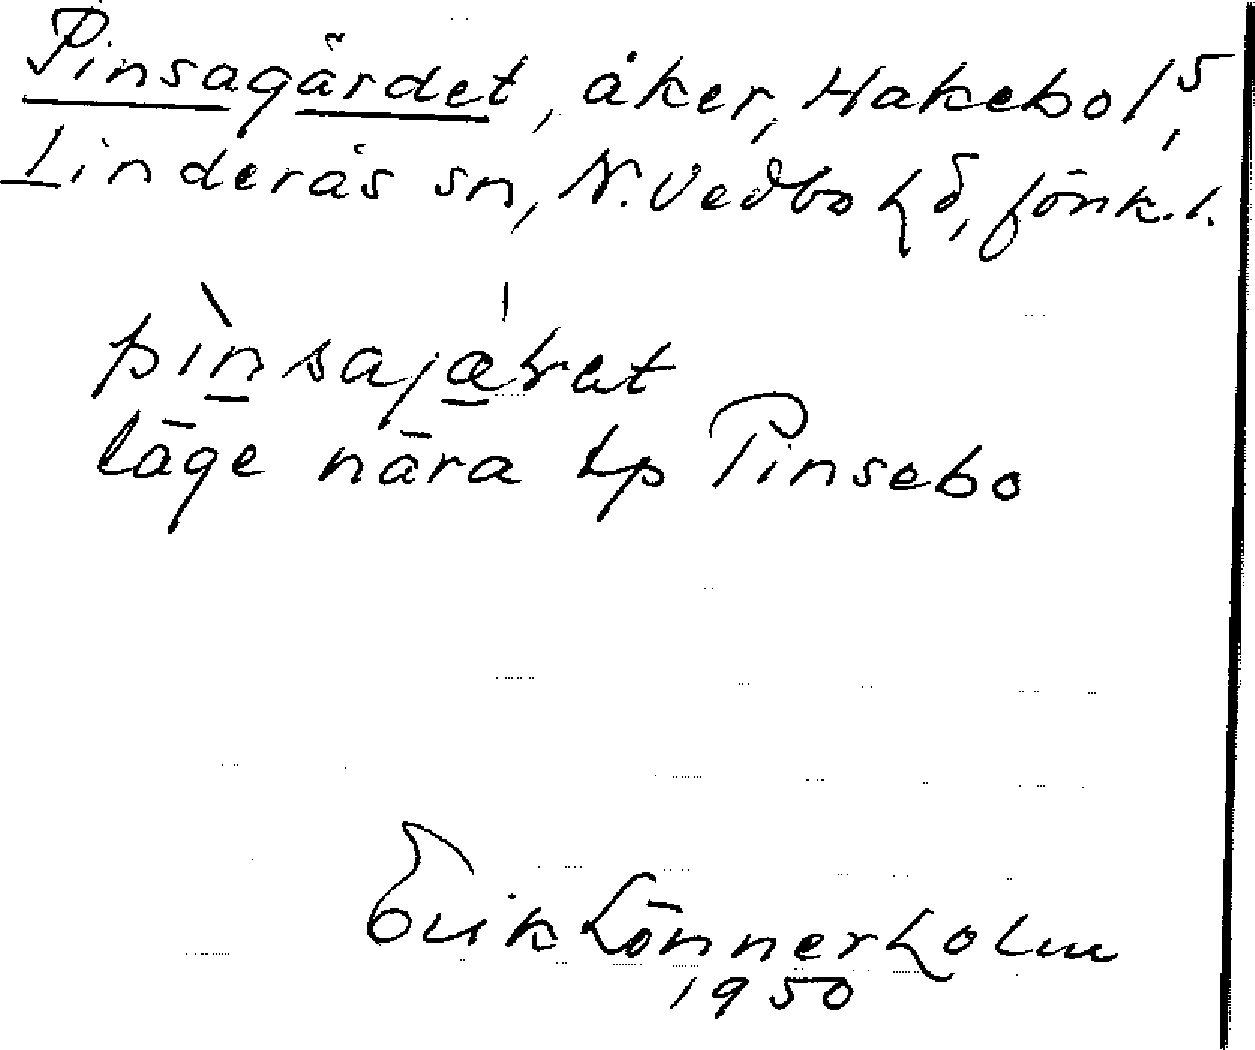 Pinsagärdet, åker, Hakebo 1⁵,
Linderås sn, N. Vedbo hd, Jönk. l.
pìnsajærat
läge nära tp Pinsebo
Erik Lönnerholm
1950